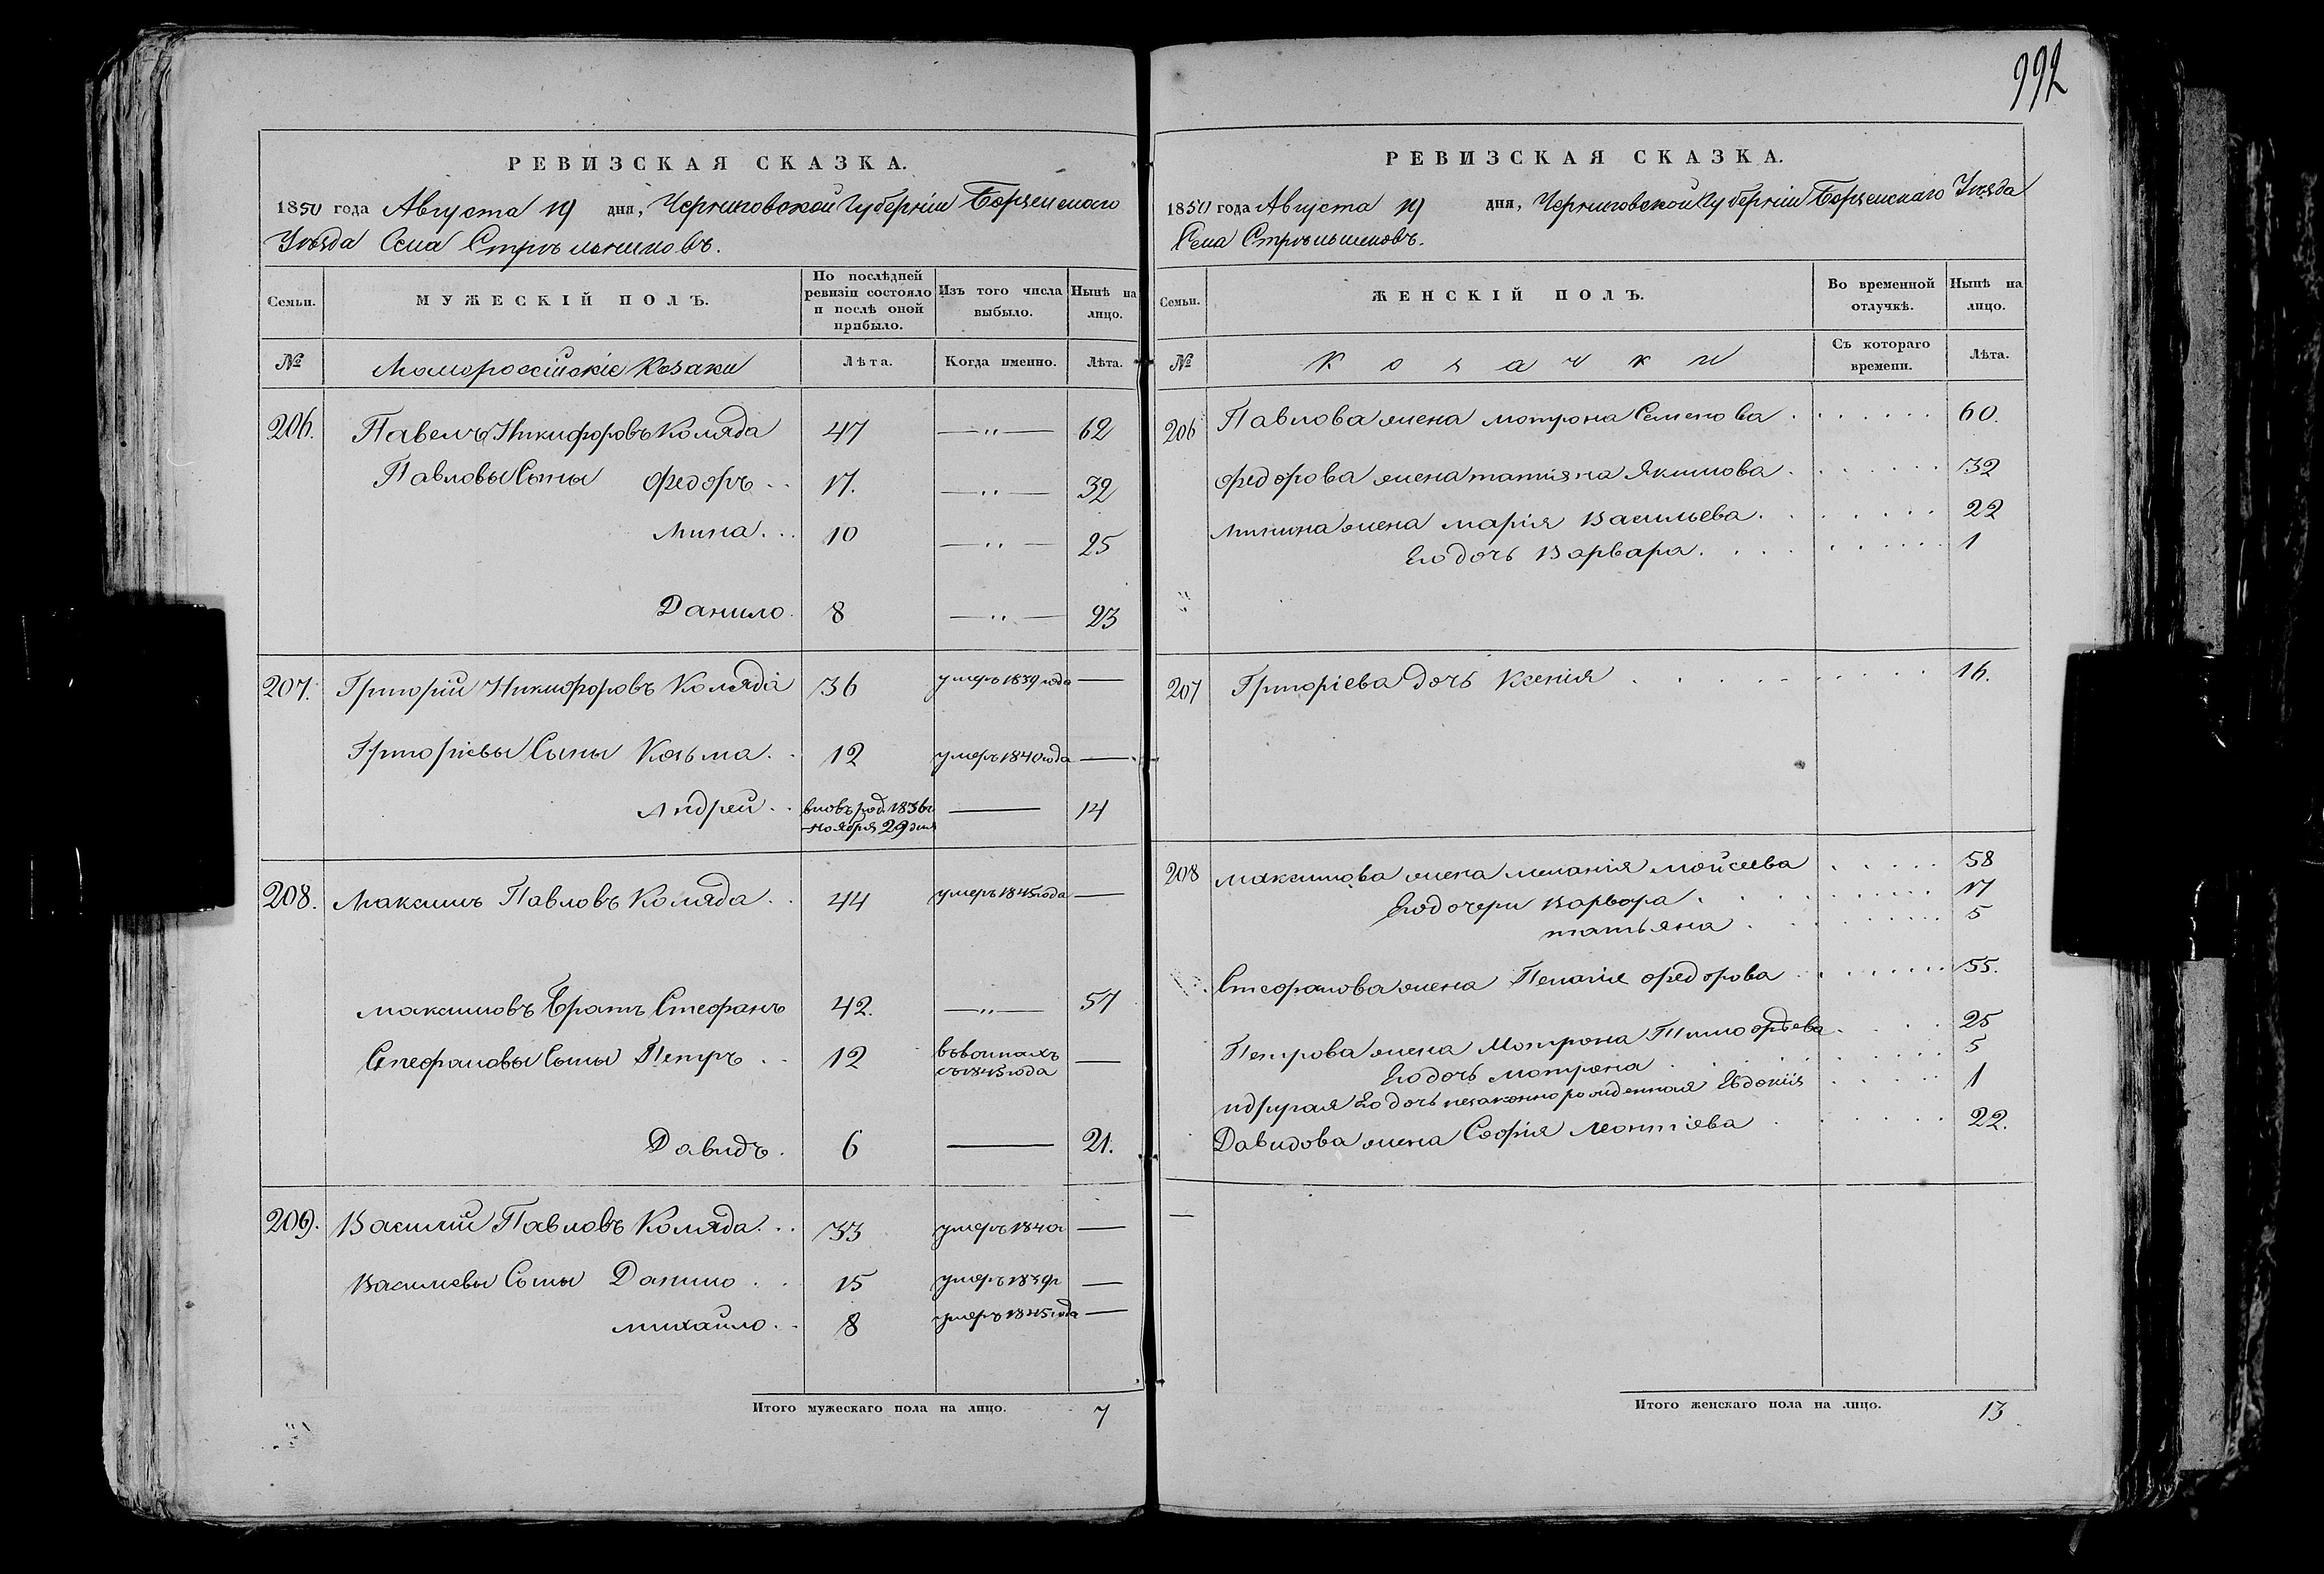 992
РЕВИЗСКАЯ СКАЗКА.
1850 года Августа 19 дня, Черниговской Губерніи Борзенскаго
Уѣзда Села Стрѣльниковъ.
Семьи.
МУЖЕСКІЙ ПОЛЪ.
По послѣдней ревизіи состояло и послѣ оной прибыло.
Изъ того числа выбыло.
Нынѣ на лицо.
№ Малороссійскіе Козаки Лѣта. Когда именно. Лѣта.
206. Павелъ Никифоровъ Коляда 47 —"— 62
Павловы Сыны Федоръ .. 17. —"— 32
Мина ... 10 —"— 25
Данило. 8 —"— 23
207. Григорій Никифоровъ Коляда 36 умеръ 1839 года —
Григоріевы Сыны Козьма .. 12 умеръ 1840 года —
Андрей .. вновь род. 1836 г. ноября 29 дня — 14
208. Максимъ Павловъ Коляда .. 44 умеръ 1845 года —
Максимовъ братъ Стефанъ 42. —"— 57
Стефановы Сыны Петръ .. 12 въ воинахъ съ 1845 года —
Давидъ. 6 — 21.
209. Василій Павловъ Коляда ... 33 умеръ 1840 г —
Васильевы Сыны Данило .. 15 умеръ 1839 г —
Михайло .. 8 умеръ 1845 года —
Итого мужескаго пола на лицо. 7
РЕВИЗСКАЯ СКАЗКА.
1850 года Августа 19 дня, Черниговской Губерніи Борзенскаго Уѣзда
Села Стрѣльниковъ.
Семьи.
ЖЕНСКІЙ ПОЛЪ.
Во временной отлучкѣ.
Нынѣ на лицо.
№ Козачки Съ котораго времени. Лѣта.
206 Павлова жена Мотрона Семенова 60.
Федорова жена Татіяна Якимова 32
Минина жена Марія Васильева 22
Ею дочь Варвара 1
207 Григоріева дочь Ксенія 16.
208 Максимова жена Меланія Мойсеева 58
Ею дочери Варвара 17
Татьяна 5
Стефанова жена Пелагія Федорова 55.
Петрова жена Мотрона Тимофѣева 25
Ею дочь Мотрона 5
и другая Ею дочь незаконно рожденная Евдокія 1
Давидова жена Софія Леонтіева 22.
—
Итого женскаго пола на лицо. 13